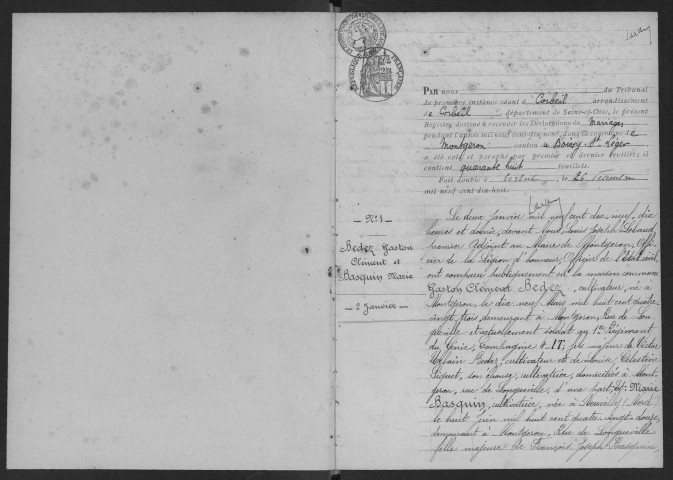 RÉPUBLIQUE FRANÇAISE
PAR nous du Tribunal
de première instance séant à Corbeil arrondissement
de Corbeil, département de Seine-et-Oise, le présent
Registre destiné à recevoir les Déclarations de Mariages
pendant l'année mil neuf cent dix-neuf, dans la commune de
Montgeron canton de Boissy-St-Léger
a été coté et paraphé par premier et dernier feuillet; il
contient quarante huit feuillets.
Fait double à Corbeil, le 26 Décembre
mil neuf cent dix-huit.
N° 1
Bedez Gaston
Clément et
Basquin Marie
2 Janvier
Le deux Janvier mil neuf cent dix-neuf, dix
heures et demie, devant Nous Louis Joseph
premier Adjoint au Maire de Montgeron, Offi-
cier de la Légion d'honneur, Officier de l'état civil
ont comparu publiquement en la maison commune
Gaston Clément Bedez, cultivateur, né à
Montgeron, le dix neuf Mars mil huit cent quatre
vingt trois, demeurant à Montgeron, Rue de Lon-
gueville et actuellement soldat au 1er Régiment
du Génie, Compagnie fils majeur de Victor
Urbain Bedez, cultivateur et de Louise Célestine
Piquet, son épouse, cultivatrice, domiciliés à Mont-
geron, rue de Longueville, d'une part, Et Marie
Basquin, cultivatrice, née à Neuvilly (Nord)
le huit Juin mil huit cent quatre-vingt-douze,
demeurant à Montgeron, Rue de Longueville
fille majeure de François Joseph Basquin,